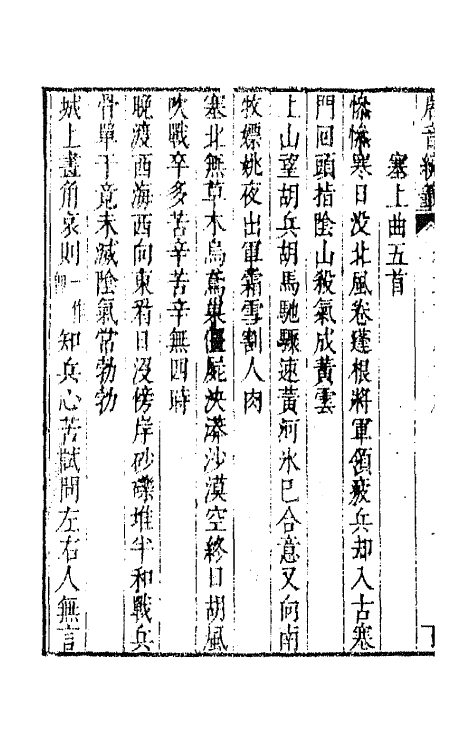 唐音統籤
塞上曲五首
慘慘寒日沒北風卷蓬根將軍領疲兵却入古塞
門回頭指陰山殺氣成黃雲
上山望胡兵胡馬馳驟速黃河氷已合意又向南
牧嫖姚夜出軍霜雪割人肉
塞北無草木烏鳶巢僵屍泱漭沙漠空終日胡風
吹戰卒多苦辛苦辛無四時
晚渡西海西向東看日沒傍岸砂礫堆半和戰兵
骨單于竟未滅陰氣常勃勃
城上畫角哀則一作卽知兵心苦試問左右人無言